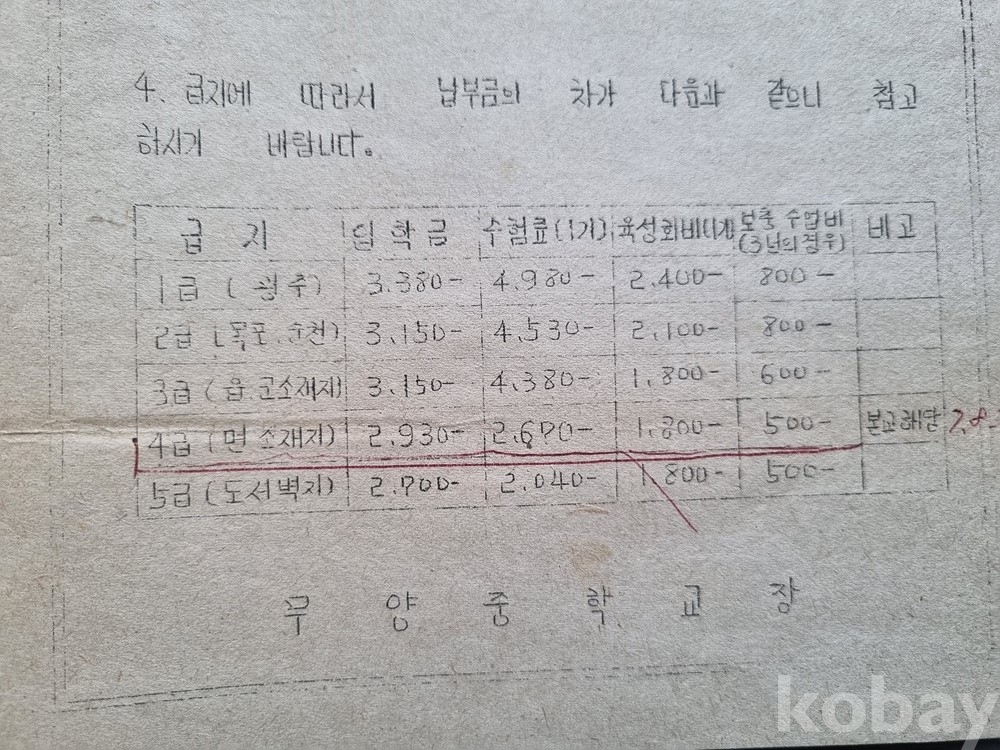 4. 급지에 따라서 납부금의 차가 다음과 같으니 참고
하시기 바랍니다.
급 지 입 학 금 수험료(1기) 육성회비(1기) 보충 수업비 (3년의 경우) 비고
1급 (광주) 3.380- 4.980- 2.400- 800-
2급 (목포.순천) 3.150- 4.530- 2.100- 800-
3급 (읍 군소재지) 3.150- 4.380- 1.800- 600-
4급 (면 소재지) 2.930- 2.670- 500- 본교해당
5급 (도서벽지) 2.700- 2.040- 800- 500-
무 양 중 학 교 장
kobay